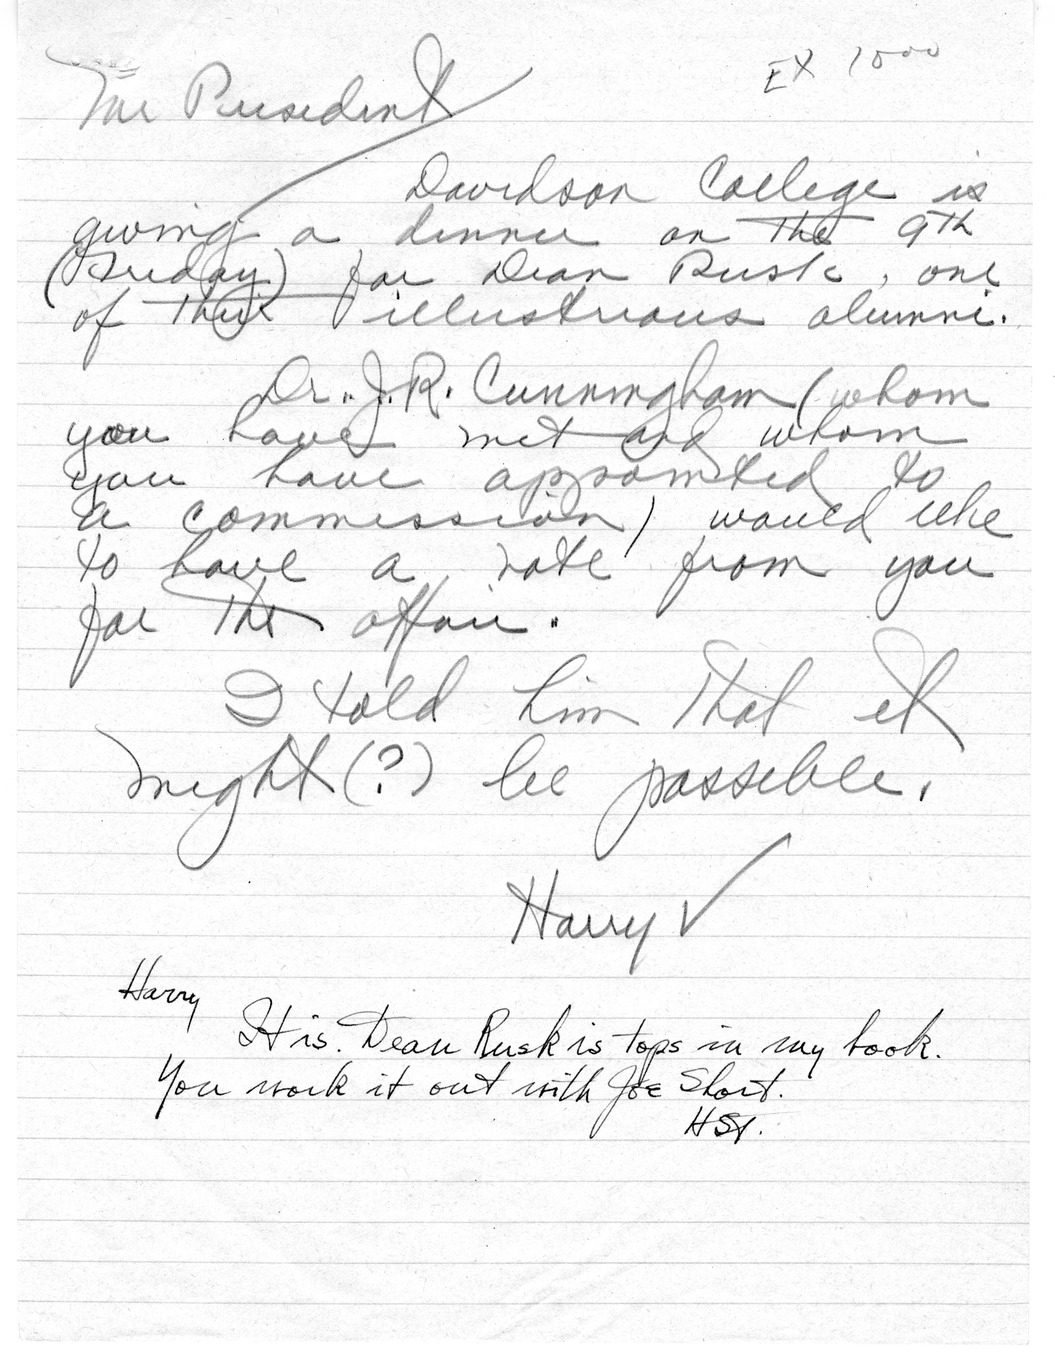 EX 1500
Mr President
Davidson College is
giving a dinner on the 9th
(Friday) for Dean Rusk, one
of their illustrious alumni.
Dr. J.R. Cunningham (whom
you have met and whom
you have appointed to
a commission) would like
to have a note from you
for the affair.
I told him that it
might (?) be possible.
Harry V
Harry
It is. Dean Rusk is tops in my book.
You work it out with Joe Short.
HST.